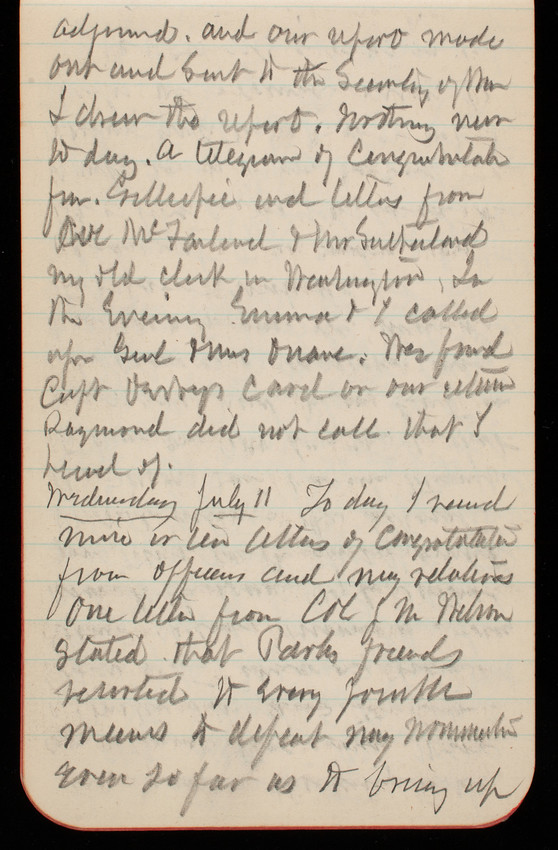 adjourned. and our report made
out and sent to the Secretary of War
I drew the report. Nothing new
to day. A telegram of Congratulate
from Gillespie and letters from
Gen McFarland & Mr Sutherland
my old clerk in Washington, In
the Evening Emma & I called
upon Genl & Mrs Duane. We found
Capt Card on our return
Raymond did not call that I
heard of.
Wednesday July 11 To day I recend
nine or ten letters of Congratulation
from officers and my relations
One letter from Col J M Wilson
stated that Parks friends
resorted to Every possible
means to defeat my nomination
Even so far as to bring up